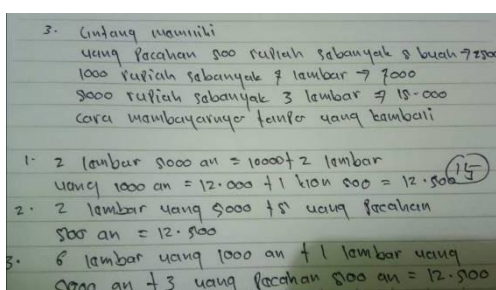 3. Lintang mamiliki
uang Pacahan 500 rupiah sabanyak 5 buah → 2500
1000 rupiah sabanyak 7 lambar → 7000
5000 rupiah sabanyak 3 lambar → 15.000
cara mambayarnya tanpa uang kambali
1. 2 lambar 5000 an = 10000 + 2 lambar
uang 1000 an = 12.000 + 1 500 = 12.500
15
2. 2 lambar uang 5000 + 5 uang Pacahan
500 an = 12.500
3. 6 lambar uang 1000 an + 1 lambar uang
5000 an + 3 uang Pacahan 500 an = 12.500